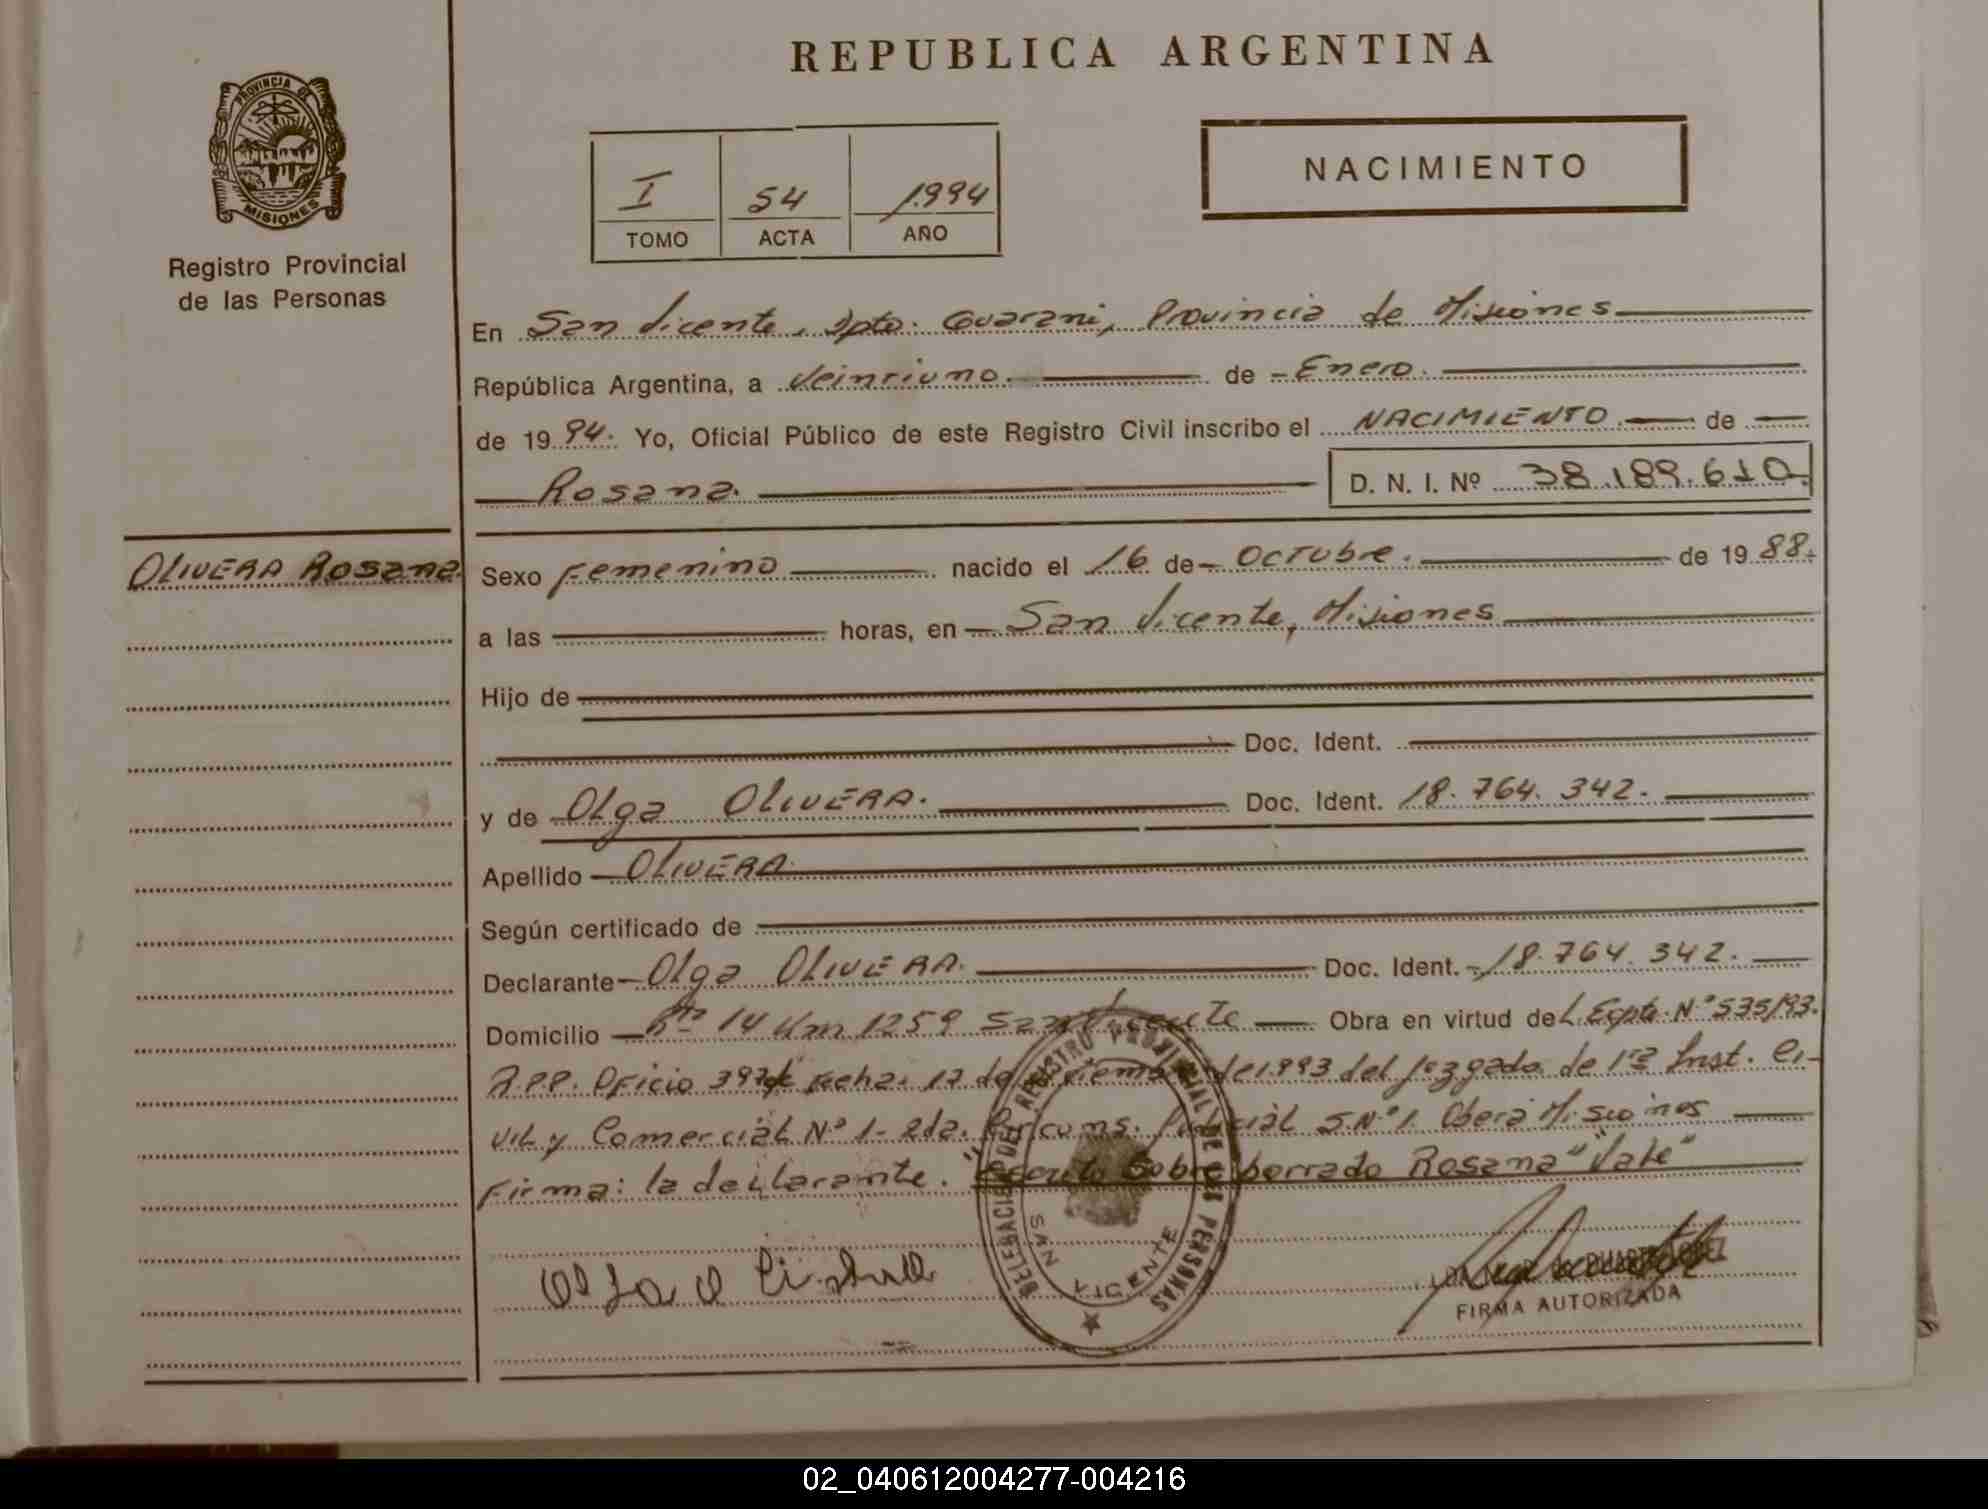 REPUBLICA ARGENTINA
PROVINCIA DE
MISIONES
Registro Provincial
de las Personas
I 54 1994
TOMO ACTA AÑO
NACIMIENTO
En San Vicente, Dpto. Guarani, Provincia de Misiones
República Argentina, a Veintiuno. de Enero.
de 1994. Yo, Oficial Público de este Registro Civil inscribo el NACIMIENTO de
Rosana. D. N. I. Nº 38.189.610
OLIVERA Rosana.
Sexo Femenino nacido el 16 de Octubre. de 1988.
a las horas, en San Vicente, Misiones
Hijo de
Doc. Ident.
y de Olga OLIVERA. Doc. Ident. 18.764.342.
Apellido OLIVERA.
Según certificado de
Declarante Olga OLIVERA. Doc. Ident. 18.764.342.
Domicilio Rta 14 Km 1259 San Vicente Obra en virtud del Expte. N° 535/93.
R.P.P. Oficio 397 Fecha: 17 de de 1.993 del Juzgado de 1ra Inst. Ci-
vil y Comercial N° 1- 2da. Circuns. Judicial S.N° 1. Oberá Misiones
Firma: la declarante. "Escrito Sobre borrado Rosana" "Vale"
DELEGACION DEL REGISTRO PROVINCIAL DE LAS PERSONAS
SAN VICENTE
DUARTE LOPEZ
FIRMA AUTORIZADA
02_040612004277-004216